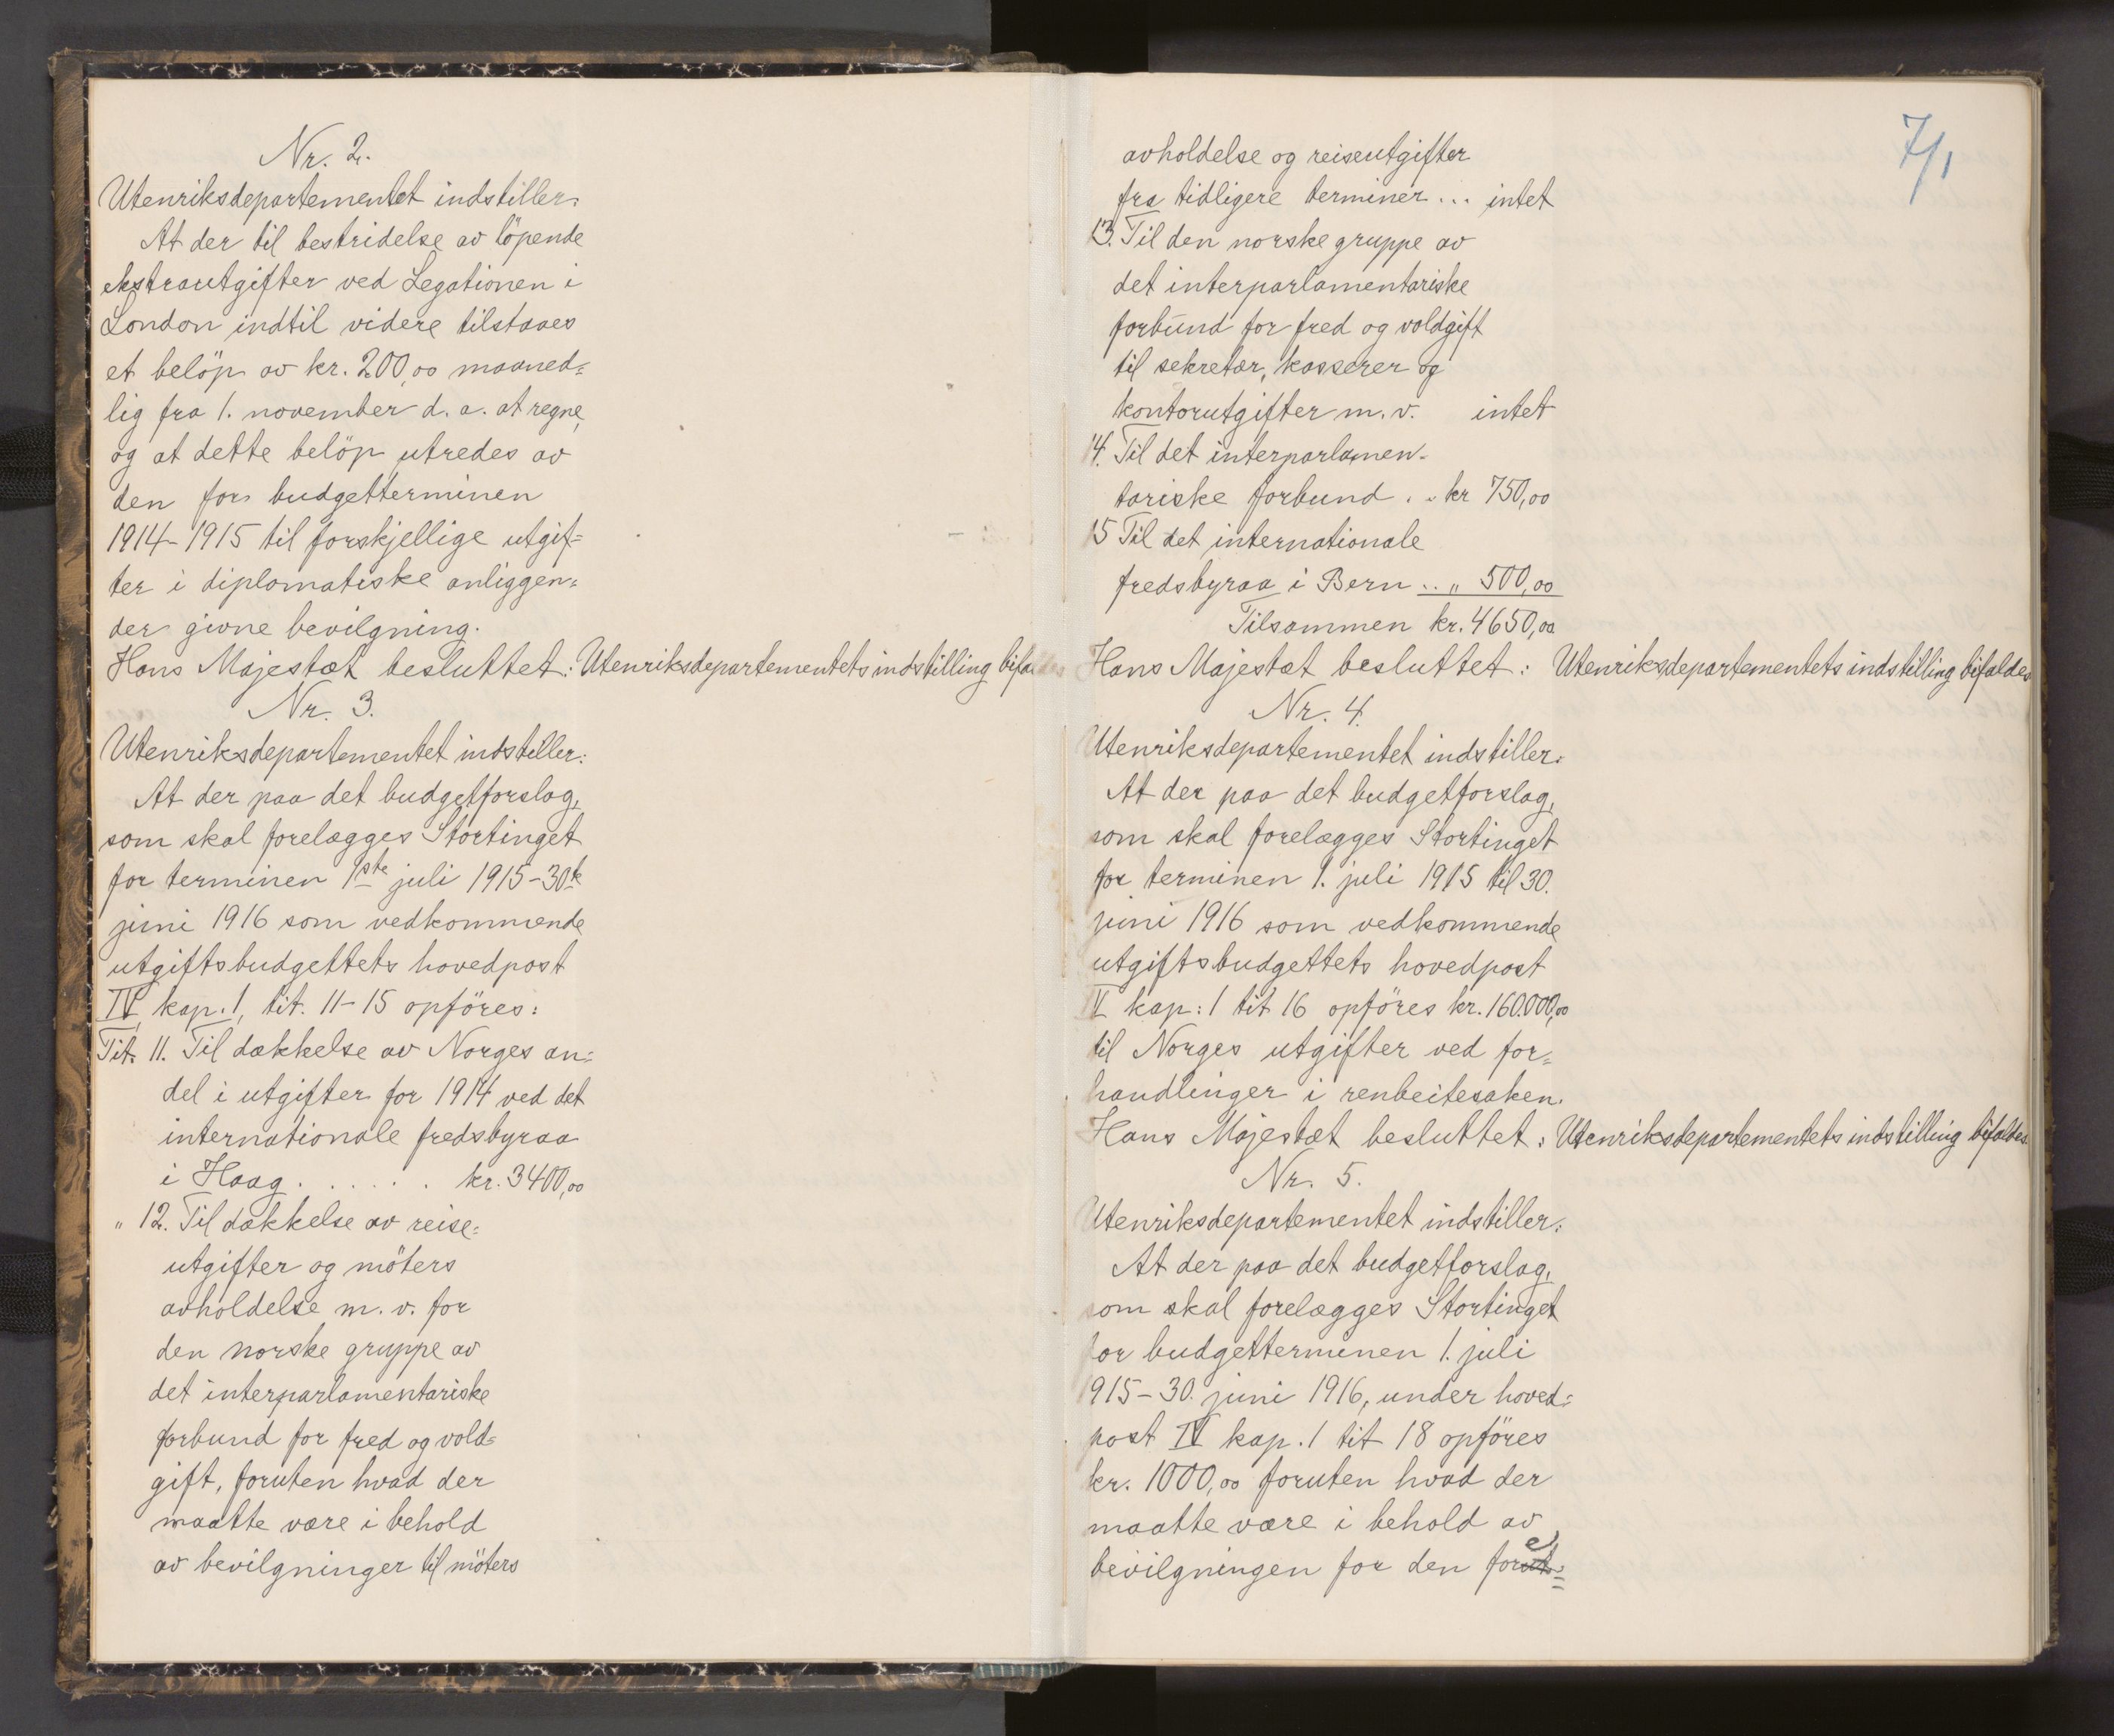 Nr. 2.
Utenriksdepartementet indstiller.
At der til bestridelse av löpende
ekstrautgifter ved Legationen i
London indtil videre tilstaaes
et belöp av kr. 200,00 maaned=
lig fra 1. november d. a. at regne,
og at dette belöp utredes av
den for budgetterminen
1914-1915 til forskjellige utgif=
ter i diplomatiske anliggen=
der givne bevilgning.
Hans Majestæt besluttet: Utenriksdepartementets indstilling bifaldes
Nr. 3.
Utenriksdepartementet indstiller:
At der paa det budgetforslag,
som skal forelægges Stortinget
for terminen 1ste juli 1915-30te
juni 1916 som vedkommende
utgiftsbudgettets hovedpost
IV kap. 1, tit. 11-15 opföres:
Tit. 11. Til dækkelse av Norges an=
del i utgifter for 1914 ved det
internationale fredsbyraa
i Haag . . . . . . kr. 3400,00
" 12. Til dækkelse av reise=
utgifter og möters
avholdelse m. v. for
den norske gruppe av
det interparlamentariske
forbund for fred og vold=
gift, foruten hvad der
maatte være i behold
av bevilgninger til möters
7/1
avholdelse og reiseutgifter
fra tidligere terminer ... intet
13. Til den norske gruppe av
det interparlamentariske
forbund for fred og voldgift
til sekretær, kasserer og
kontorutgifter m. v. intet
14. Til det interparlamen-
tariske forbund . . kr 750,00
15 Til det internationale
fredsbyraa i Bern .. " 500,00
Tilsammen kr. 4650,00
Hans Majestæt besluttet: Utenriksdepartementets indstilling bifaldes
Nr. 4.
Utenriksdepartementet indstiller:
At der paa det budgetforslag,
som skal forelægges Stortinget
for terminen 1. juli 1915 til 30.
juni 1916 som vedkommende
utgiftsbudgettets hovedpost
IV kap: 1 tit 16 opföres kr. 160.000,00
til Norges utgifter ved for=
handlinger i renbeitesaken.
Hans Majestæt besluttet: Utenriksdepartementets indstilling bifaldes.
Nr. 5.
Utenriksdepartementet indstiller:
At der paa det budgetforslag,
som skal forelægges Stortinget
for budgetterminen 1. juli
1915-30. juni 1916, under hoved=
post IV kap. 1 tit 18 opföres
kr. 1000,00 foruten hvad der
maatte være i behold av
bevilgningen for den fore=